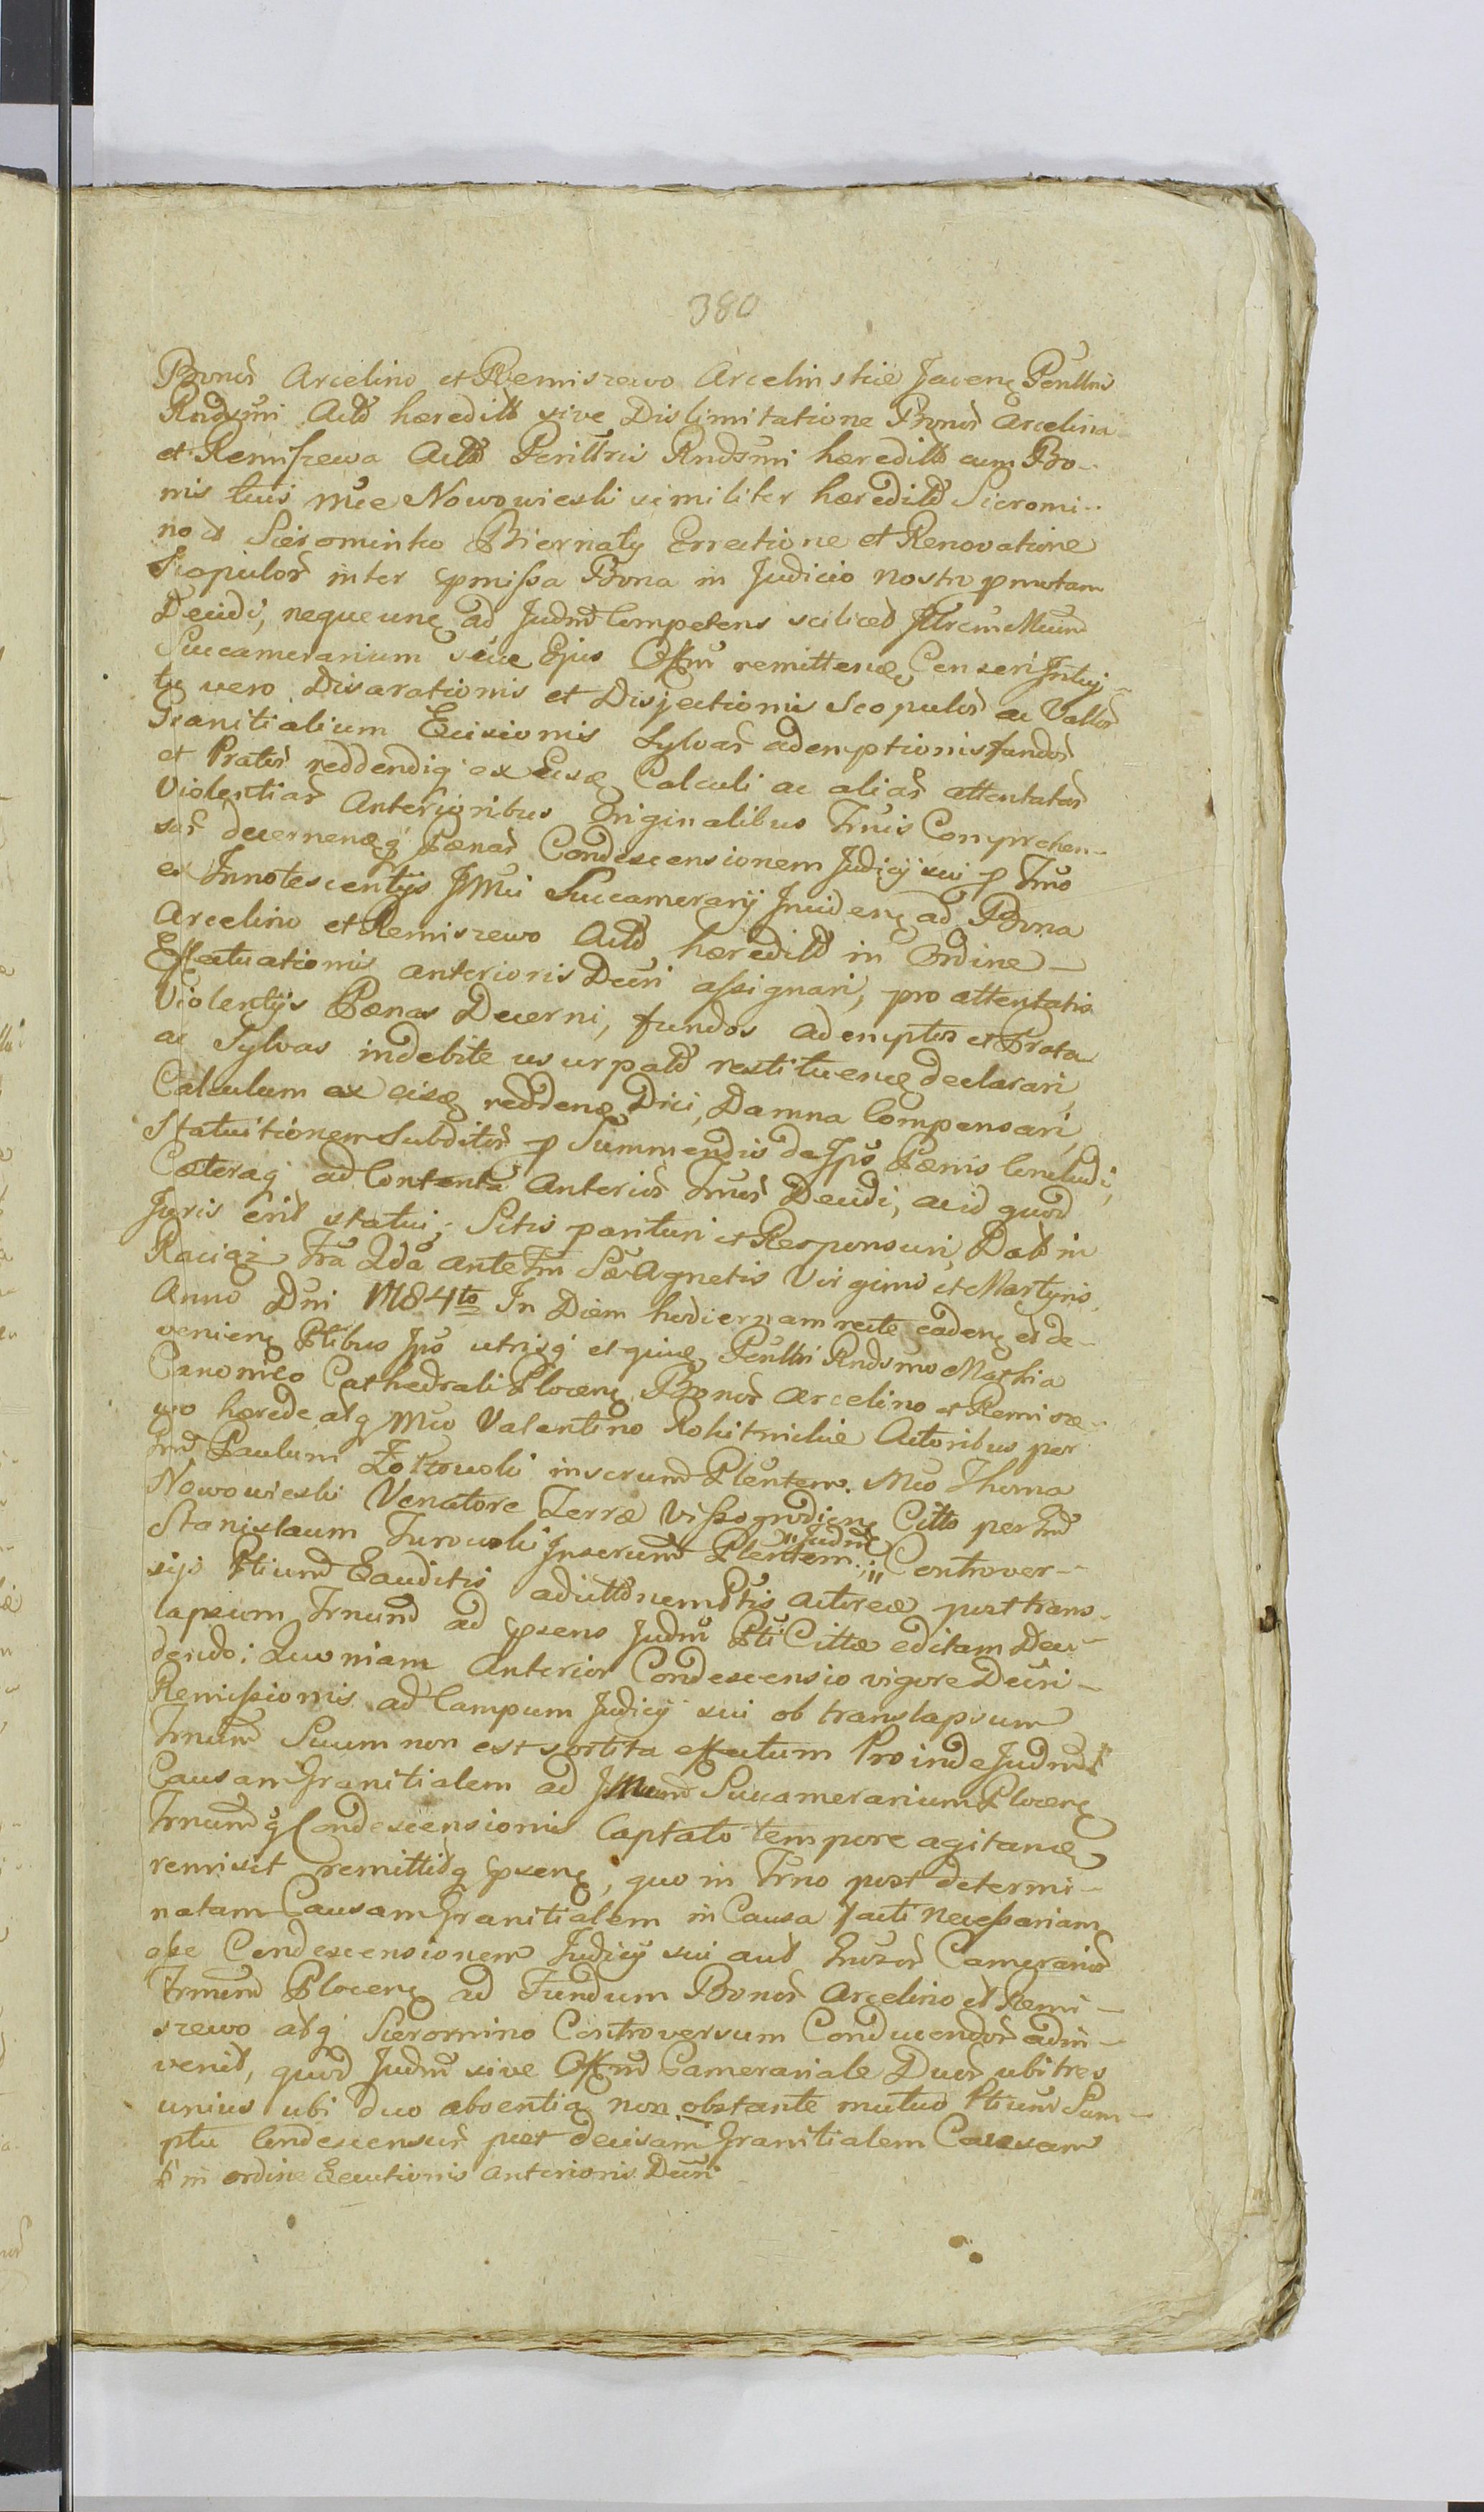 380
Bonor Arcelino et Remiszewo Arcelinskie Jacenę Peulłris
Rndsmi Actō hæreditō sive Dislimitatione Bonor Arcelina
et Remiszewa Actō Perilłris Rndsmi hæreditō cum Bo-
nis tuis Mce Nowowieski similiter hæreditō Sieromi-
no et Sierominko Biernaty Errectione et Renovatione
Scopulor inter pmissa Bona in Judicio nostro pmotam
Decidi, nequeunę ad Judm Competens scilicet Jllrem Mcum
Succamerarium seue Ejus Offm remittenæ, Censeri Intuj-
tu vero Disarationis et Disjectionis Scopulor ac Vallor
Granitialium Excisionis Sylvar ademptionis fundor
et Prator reddendiq ex Eisæ Calculi ac aliar attentatar
Violentiar Anterioribus Originalibus Trnis Comprehen-
sar decernenæq Pænar Condescensionem Judicij sui p Trno
ex Innotescentijs JMci Succamerarij Incidenę ad Bona
Arcelino et Remiszewo Actō hæreditō in Ordine
Effectuationis anterioris Decri assignari, pro attentatis
Violentijs Pænas Decerni, fundos ademptos et Prata
ac Sylvas indebite usurpatō restituenę declarari,
Calculum ex eisæ reddenæ Dici, Damna Compensari,
Statuitionem Subditor p Summendis de Jps Pænis Concludi,
Cæteraq ad Contenta Anterior Trnor Decidi, ac id quod
Juris erit statui; Sitis parituri et Responsuri, Dat in
Raciąż Fra 2da Ante Fm Sæ Agnetis Virginis et Martyris,
Anno Dni M84to In Diem hodiernam recte cadenę et de-
venienę Ptibus Jps utrisq et quiuę Peulłri Rndsmo Mathia
Canonico Cathedrali Plocenę Bonor Arcelino et Remisze-
wo hærede atq Mco Valentino Rokitnickie Actoribus per
Gnd Paulum Zołtowski inscrum Plentem. Mco Thoma
Nowowieski Venatore Terræ Vissogrodienę Citto per Gnd
Stanislaum Turowski Inscrum Plentem; "Judm" Controver-
sijs Ptium Exauditis adictonem Ptis Actoreæ post trans-
lapsum Trnum ad psens Judm Pti Cittæ editam Dece-
dendo; Quoniam Anterior Condescensio vigore Decri
Remissionis ad Campum Judicij sui ob translapsum
Trnum Suum non est sortita effectum Proinde Judm
Causam Granitialem ad JMcum Succamerarium Plocenę
Trnumq Condescensionis Captato tempore agitanæ
remisit remittitq psenę, quo in Trno post determi-
natam Causam Granitialem in Causa facti necessariam
esse Condescensionem Judicij sui aut Camerarior
Trnum Plocenę ad Fundum Bonor Arcelino et Remi-
szewo atq Sieromino Controversum Conducendor adin-
venit, quod Judm sive Offm Camerariale Duor ubi tres
unius ubi duo absentia non obstante mutuo Ptium Sum-
ptu Condescensur post decisam Granitialem Causam
in ordine Executionis anterioris Decri